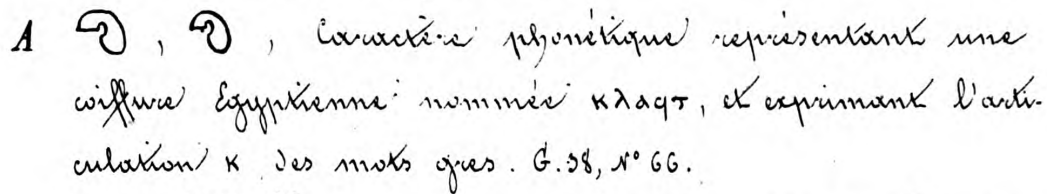 A , , Caractère phonétique représentant une
coiffure Egyptienne nommée ⲕⲗⲁϥⲧ, et exprimant l'arti-
culation ⲕ des mots grecs. G. 38, N° 66.